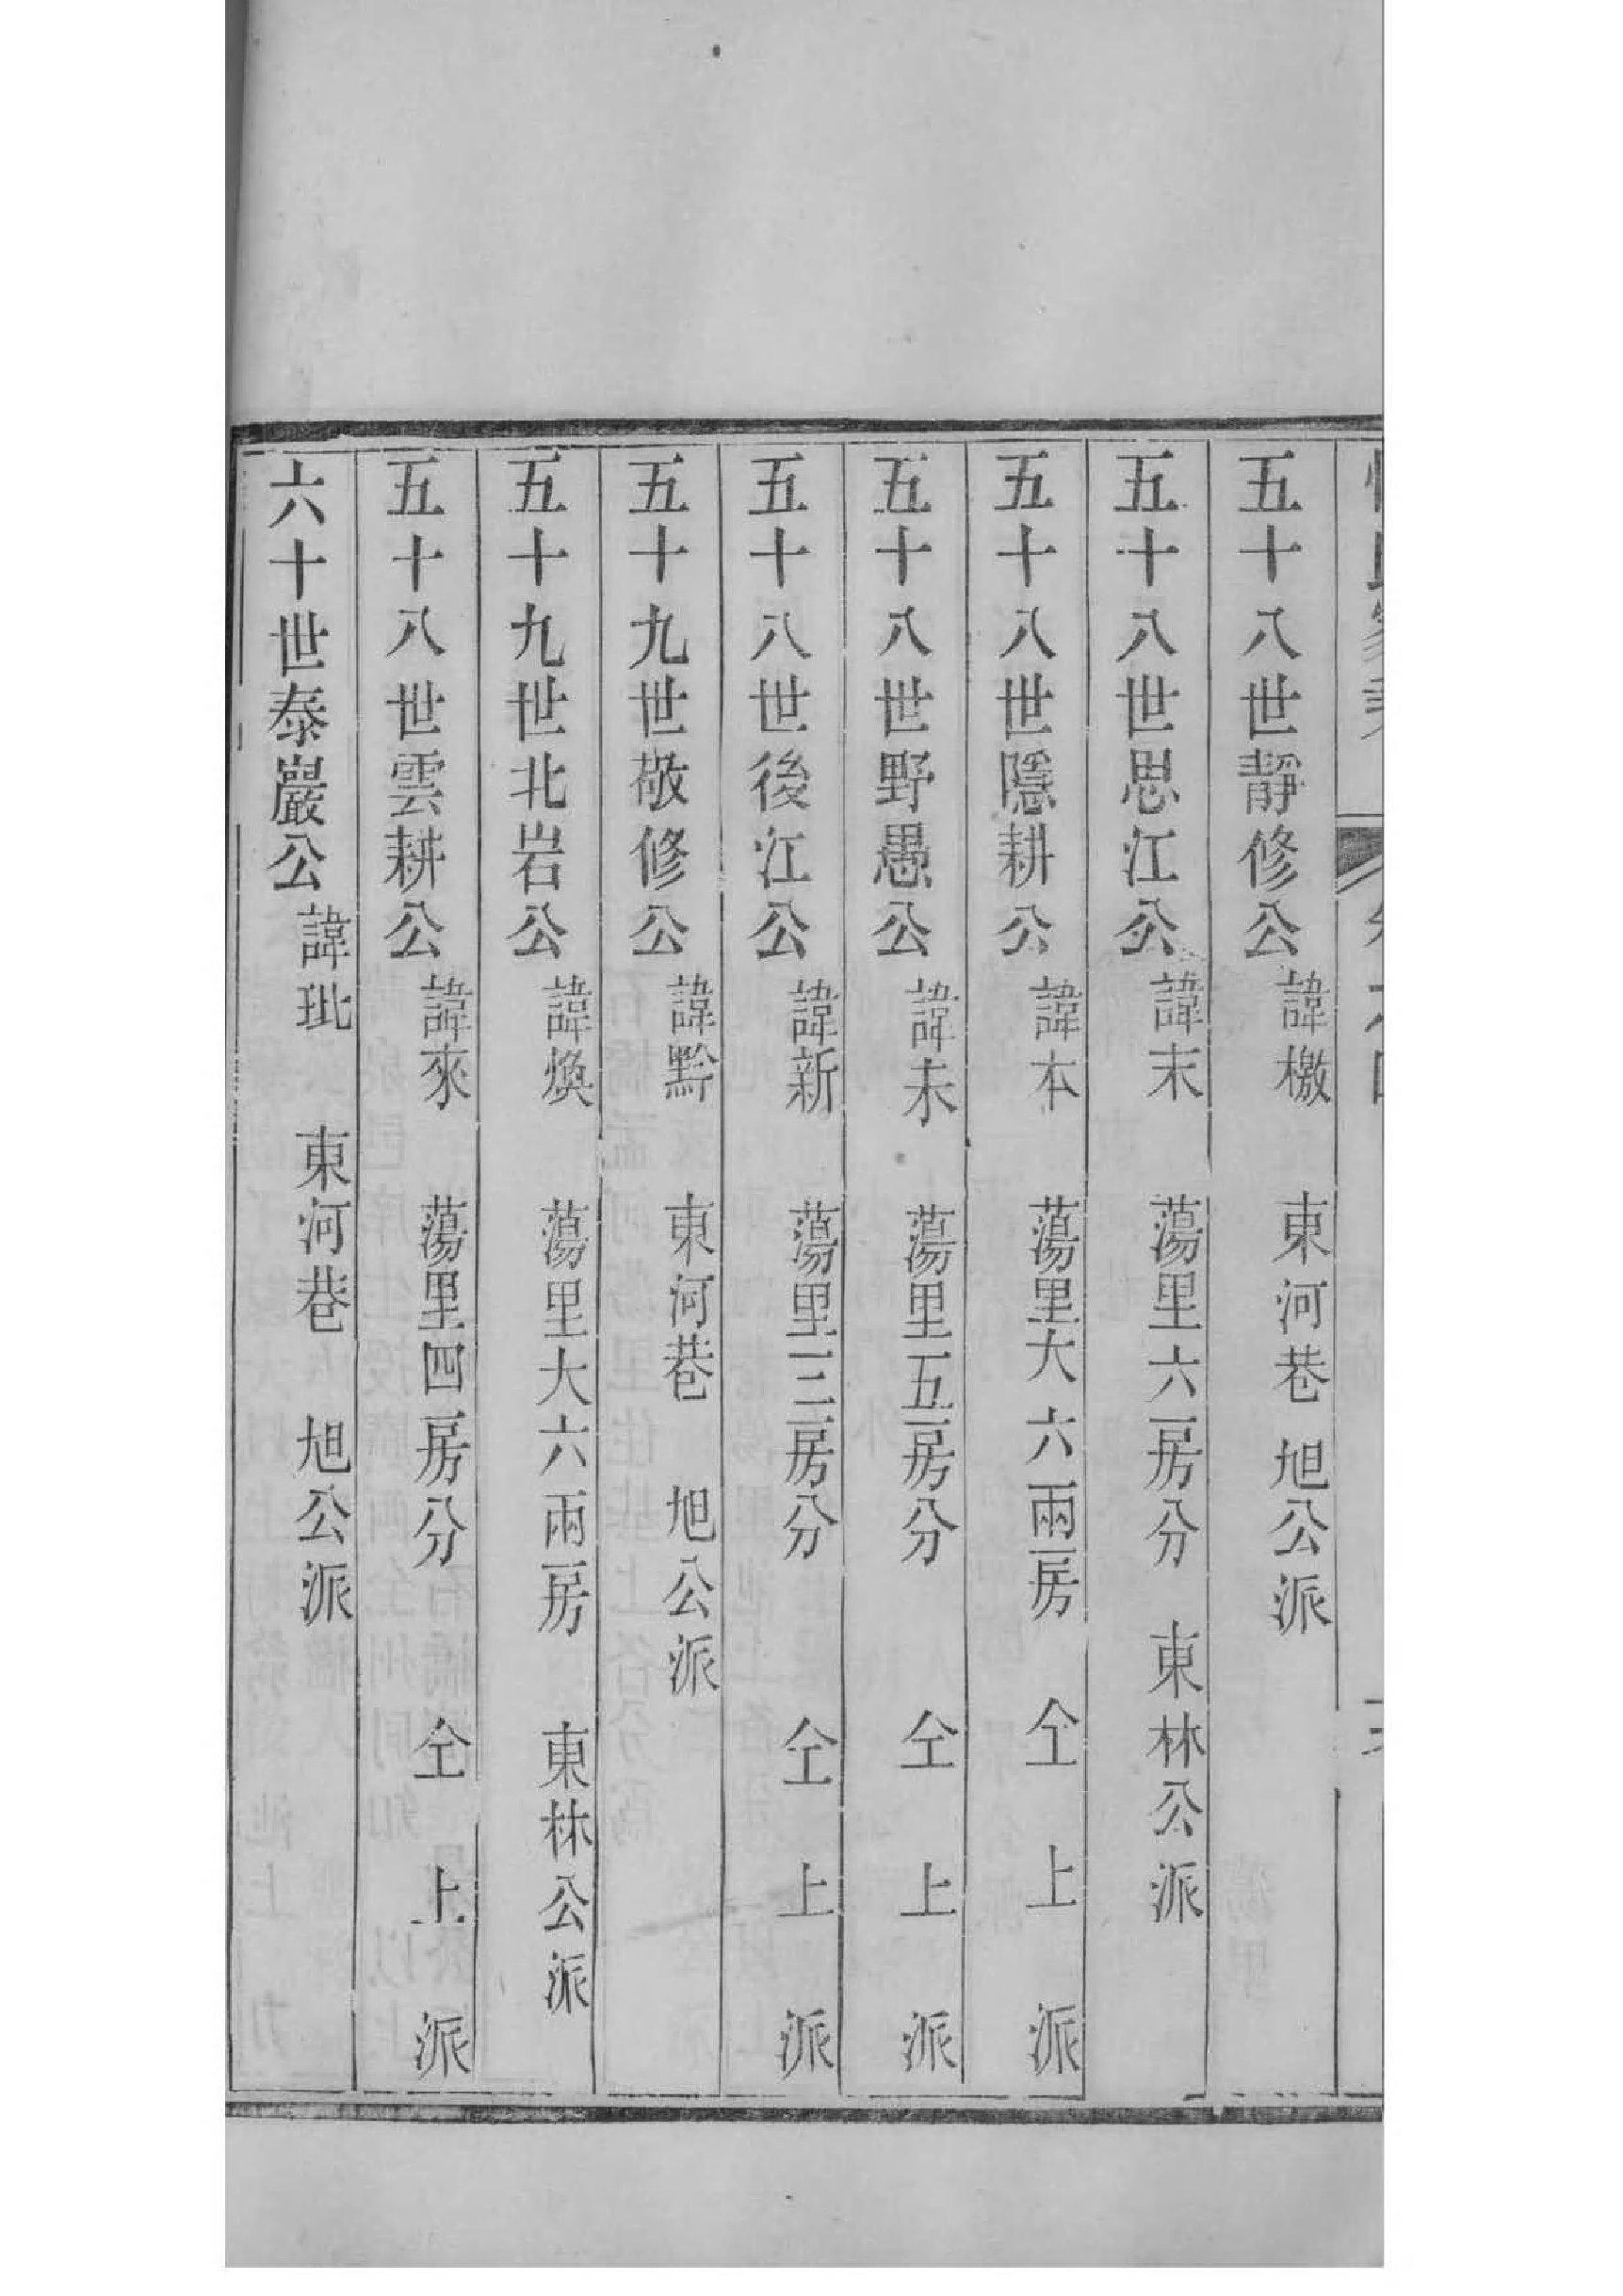 五十八世靜修公 諱檄 東河巷 旭公派
五十八世思江公 諱末 蕩里六房分 東林公派
五十八世隱耕公 諱本 蕩里大六兩房 仝上派
五十八世野愚公 諱未 蕩里五房分 仝上派
五十八世後江公 諱新 蕩里三房分 仝上派
五十九世敬修公 諱黔 東河巷 旭公派
五十九世北岩公 諱煥 蕩里大六兩房 東林公派
五十八世雲耕公 諱來 蕩里四房分 仝上派
六十世泰巖公 諱玭 東河巷 旭公派